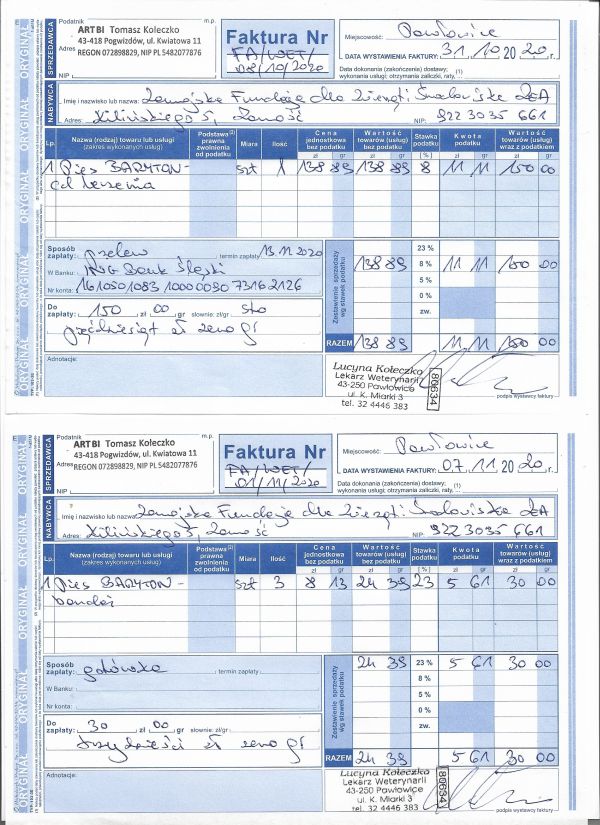 ORYGINAŁ ORYGINAŁ ORYGINAŁ ORYGINAŁ
SPRZEDAWCA
Podatnik
m.p.
ARTBI Tomasz Kołeczko
43-418 Pogwizdów, ul. Kwiatowa 11
Adres REGON 072898829, NIP PL 5482077876
NIP
Faktura Nr
FA/WET/
08/10/2020
Miejscowość: Pawłowice
DATA WYSTAWIENIA FAKTURY: 31.10 20 20 r.
Data dokonania (zakończenia) dostawy;
wykonania usługi; otrzymania zaliczki, raty, (1)
NABYWCA
Imię i nazwisko lub nazwa: Zamojska Fundacja dla Zwierząt i Środowiska ZEA
Adres: Kilińskiego 5, Zamość NIP: 922 3035 661
Lp. Nazwa (rodzaj) towaru lub usługi (zakres wykonanych usług) Podstawa (2) prawna zwolnienia od podatku Miara Ilość Cena jednostkowa bez podatku Wartość towarów (usług) bez podatku Stawka podatku Kwota podatku Wartość towarów (usług) wraz z podatkiem
zł gr zł gr [%] zł gr zł gr
1 Pies BARYTON - szt 1 138 89 138 89 8 11 11 150 00
Sposób zapłaty: przelew termin zapłaty 13.11.2020
W Banku: ING Bank Śląski
Nr konta: 16105010831000009073162126
Zestawienie sprzedaży wg stawek podatku
23 %
138 89 8 % 11 11 150 00
5 %
0 %
zw.
Do zapłaty: 150 zł 00 gr słownie: zł/gr sto
pięćdziesiąt zł zero gr
RAZEM 138 89 11 11 150 00
Adnotacje:
Lucyna Kołeczko
Lekarz Weterynarii
43-250 Pawłowice
ul. K. Miarki 3
tel. 32 4446 383
80634
podpis wystawcy faktury
ORYGINAŁ ORYGINAŁ ORYGINAŁ ORYGINAŁ
SPRZEDAWCA
Podatnik
m.p.
ARTBI Tomasz Kołeczko
43-418 Pogwizdów, ul. Kwiatowa 11
Adres REGON 072898829, NIP PL 5482077876
NIP
Faktura Nr
FA/WET/
01/11/2020
Miejscowość: Pawłowice
DATA WYSTAWIENIA FAKTURY: 07.11 20 20 r.
Data dokonania (zakończenia) dostawy;
wykonania usługi; otrzymania zaliczki, raty, (1)
NABYWCA
Imię i nazwisko lub nazwa: Zamojska Fundacja dla Zwierząt i Środowiska ZEA
Adres: Kilińskiego 5, Zamość NIP: 922 3035 661
Lp. Nazwa (rodzaj) towaru lub usługi (zakres wykonanych usług) Podstawa (2) prawna zwolnienia od podatku Miara Ilość Cena jednostkowa bez podatku Wartość towarów (usług) bez podatku Stawka podatku Kwota podatku Wartość towarów (usług) wraz z podatkiem
zł gr zł gr [%] zł gr zł gr
1 Pies BARYTON - szt 3 8 13 24 39 23 5 61 30 00
bandaż
Sposób zapłaty: gotówka termin zapłaty
W Banku:
Nr konta:
Zestawienie sprzedaży wg stawek podatku
24 39 23 % 5 61 30 00
8 %
5 %
0 %
zw.
Do zapłaty: 30 zł 00 gr słownie: zł/gr
trzydzieści zł zero gr
RAZEM 24 39 5 61 30 00
Adnotacje:
Lucyna Kołeczko
Lekarz Weterynarii
43-250 Pawłowice
ul. K. Miarki 3
tel. 32 4446 383
80634
podpis wystawcy faktury